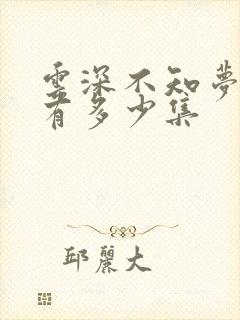 雲深不知夢
有多少集
邱麗大